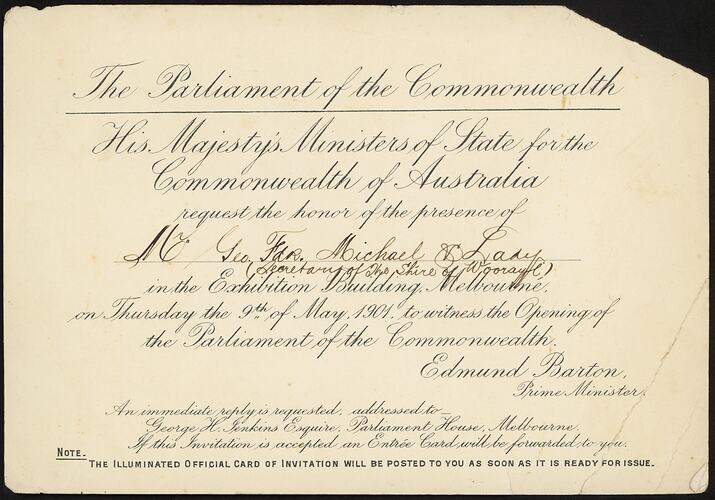 The Parliament of the Commonwealth
His Majesty's Ministers of State for the
Commonwealth of Australia
request the honor of the presence of
Mr Geo. Fdk. Michael & Lady
(Secretary of the Shire of Woorayl)
in the Exhibition Building, Melbourne,
on Thursday the 9th of May, 1901, to witness the Opening of
the Parliament of the Commonwealth.
Edmund Barton,
Prime Minister.
An immediate reply is requested, addressed to _
George H. Jenkins Esquire, Parliament House, Melbourne.
If this Invitation is accepted an Entrée Card will be forwarded to you.
NOTE._ THE ILLUMINATED OFFICIAL CARD OF INVITATION WILL BE POSTED TO YOU AS SOON AS IT IS READY FOR ISSUE.